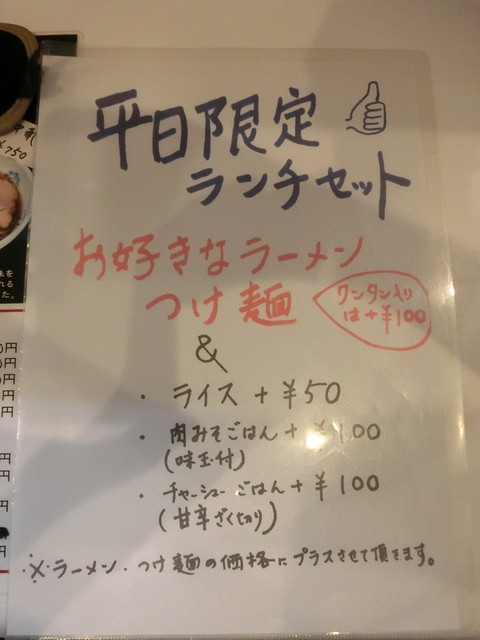 平日限定
ランチセット
お好きなラーメン
つけ麺
ワンタン入り
は+¥100
&
・ライス+¥50
・肉みそごはん+¥100
(味玉付)
・チャーシューごはん+¥100
(甘辛ざく切り)
※ラーメン・つけ麺の価格にプラスさせて頂きます。
¥750
味を
れる
た。
0円
0円
0円
円
円
円
円
円
円